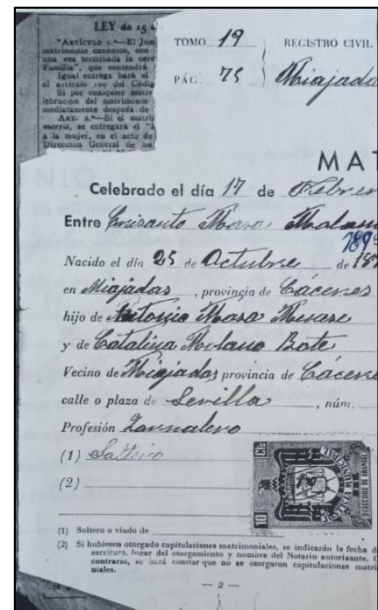 LEY de 15 d
"Artículo 1.º—El Jue
matrimonio canónico, con
una vez terminada la cere
Familia", que contendrá
Igual entrega hará el
al artículo 100 del Códig
Si por cualquier motiv
lebración del matrimonio
mediatamente después de
Art. 2.º—Si el matri
morria, se entregará el "L
a la mujer, en el acto de
Dirección General de
TOMO 19
REGISTRO CIVIL
PÁG. 75
Miajada
MAT
Celebrado el día 17 de Febrer
Entre Crisanto Maso Molan
189
Nacido el día 25 de Octubre de 18
en Miajadas, provincia de Cáceres
hijo de Antonio Maso
y de Catalina Molano Bote
Vecino de Miajadas provincia de Cácere
calle o plaza de Sevilla, núm.
Profesión Jornalero
(1) Soltero
(2)
10 Cts
(1) Soltero o viudo de
(2) Si hubiesen otorgado capitulaciones matrimoniales, se indicarán la fecha d
escritura, lugar del otorgamiento y nombre del Notario autorizante.
contrario, se hará constar que no se otorgaron capitulaciones matri
niales.
— 2 —